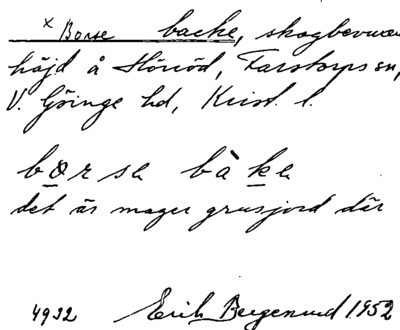 x Borse backe, skogbevuxen
höjd å Hörröd, Farstorps sn,
V. Göinge hd, Krist. l.
borse bàke
det är mager grusjord där
4932 Erik Bergenund 1952